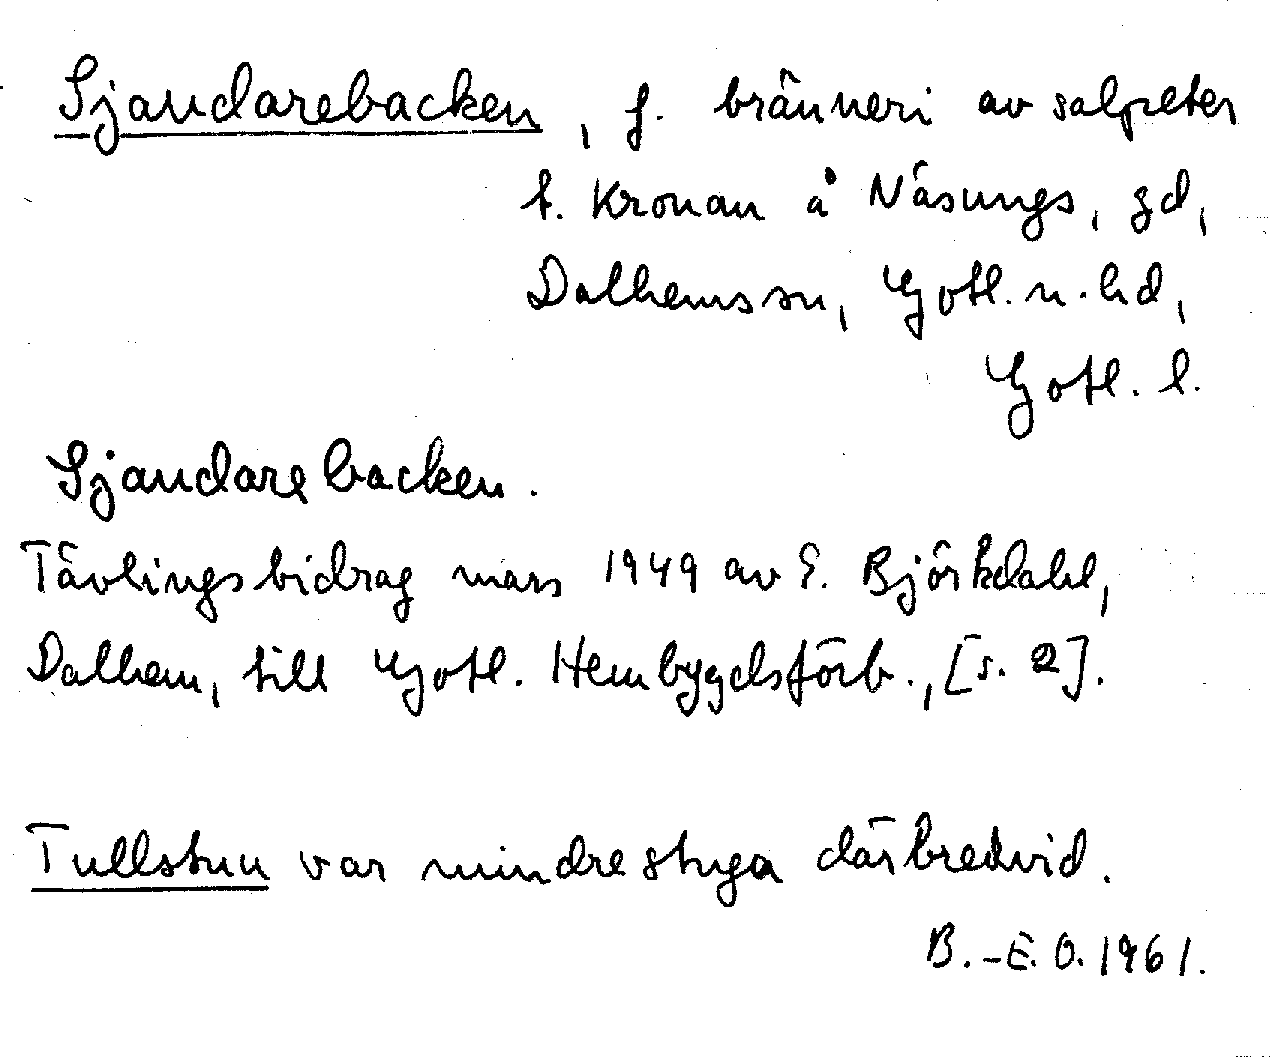 Sjaudarebacken, f. bränneri av salpeter
t. Kronan å Näsungs, gd,
Dalhems sn, Gotl. n. hd,
Gotl. l.
Sjaudarebacken.
Tävlingsbidrag mars 1949 av E. Björkdahl,
Dalhem, till Gotl. Hembygdsförb., [s. 2].
Tullstuu var mindre stuga därbredvid.
B.-E. O. 1961.